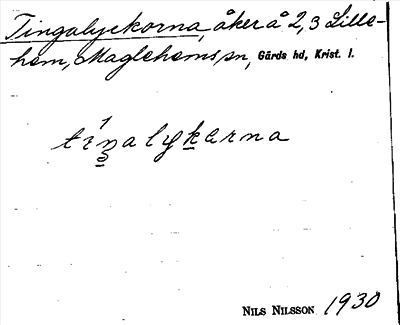 Tingalyckorna, åker å 2, 3 Lille-
hem, Maglehems sn, Gärds hd, Krist. l.
tíŋalykarna
NILS NILSSON 1930